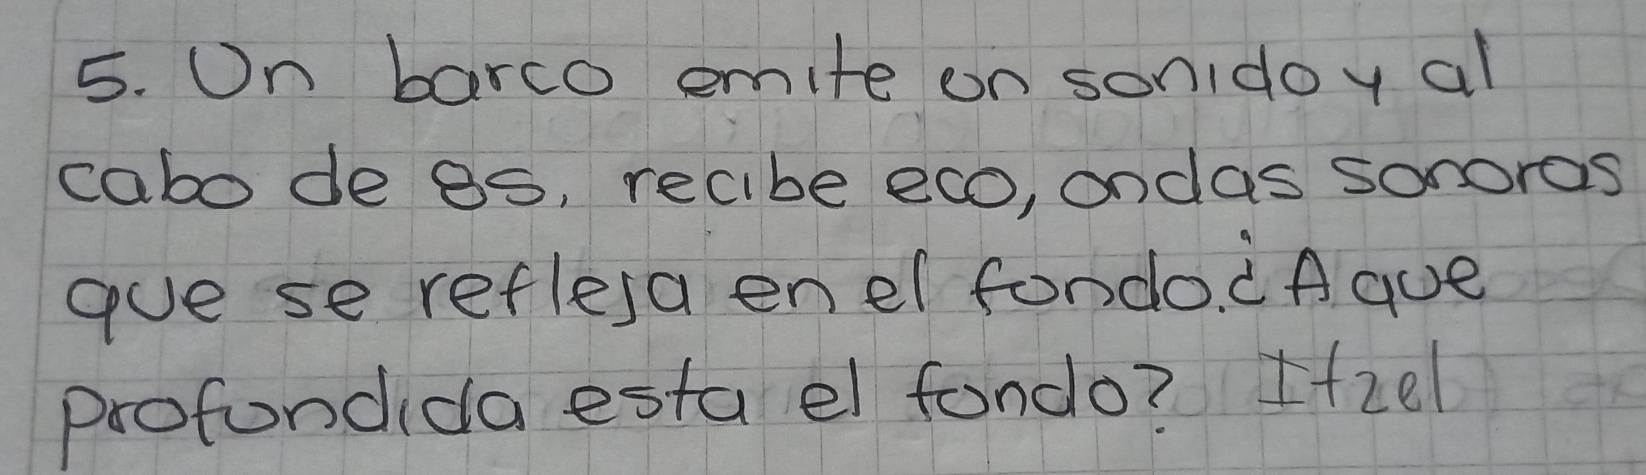 5. Un barco emite un sonido y al
cabo de 8s, recibe eco, ondas sonoras
que se refleja en el fondo. ¿A que
profundida esta el fondo? Itzel